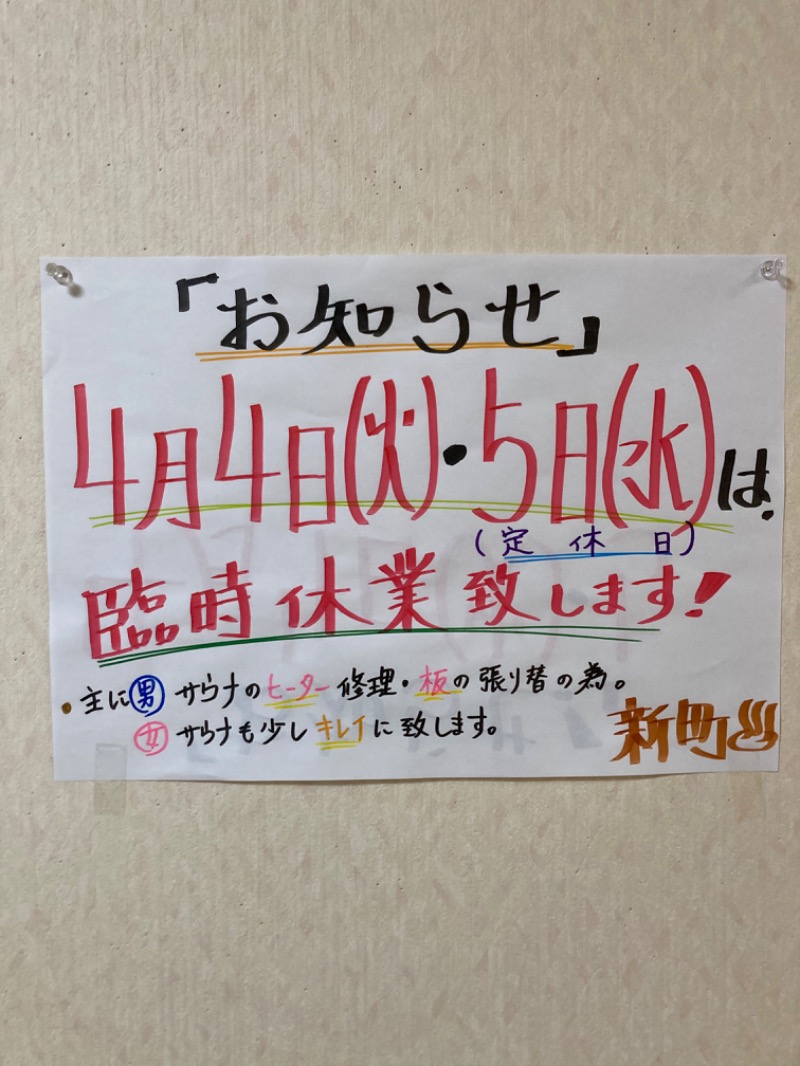 「お知らせ」
4月4日(火)・5日(水)は、
(定休日)
臨時休業致します!
・主に男サウナのヒーター修理・板の張り替の為。
女サウナも少しキレイに致します。
新町♨